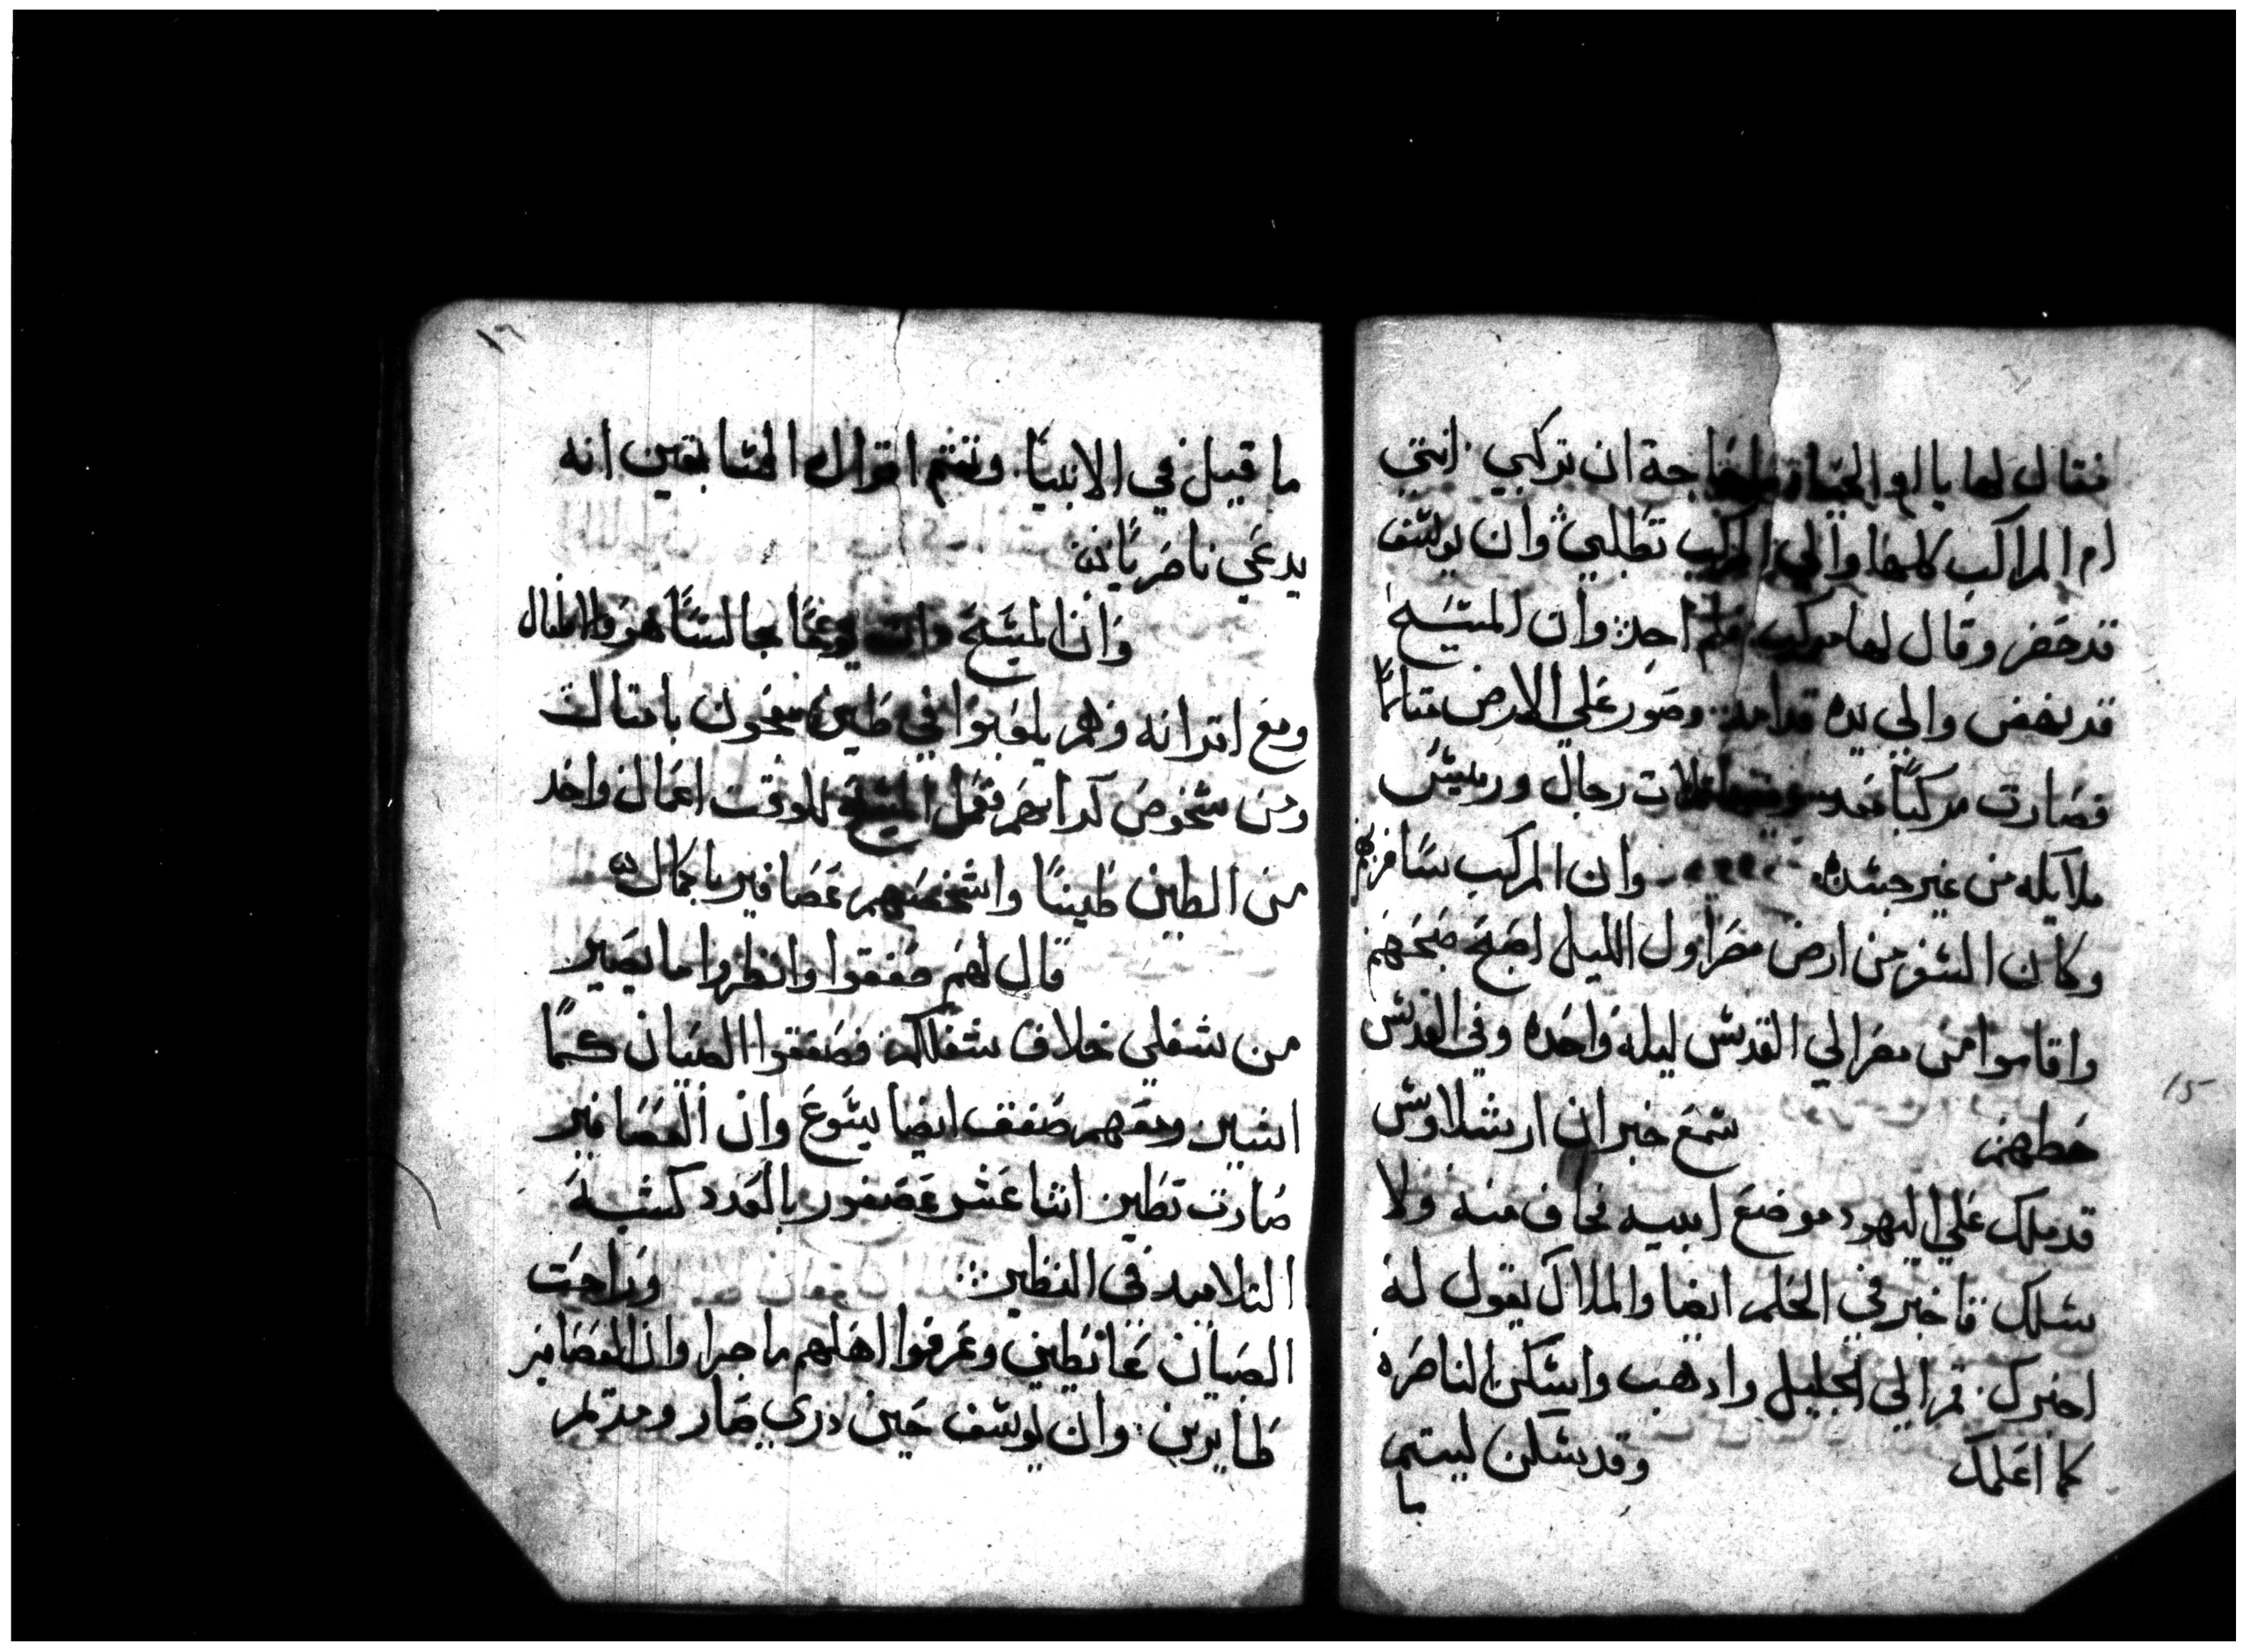 فقال لها يا ام الحياة ما حاجة ان تركبي انتي
ام المراكب كلها والي المركب تطلبي وان يوسف
قد حضر وقال لها مركب فلم اجد وان المسيح
قد نهض والي يده قدامه وصور علي الارض مثالاً
فصارت مركباً ثلاث رجال وريس
ملايكه من غير جسد وان المركب سافر بهم
وكان السفر من ارض مصر اول الليل اصبح صبحهم
واقاموا من مصر الي القدس ليله واحده وفي القدس
حطهم سمع خبر ان ارشلاوش
قد ملك علي اليهود موضع ابيه نخاف منه ولا
يسلك فاخبر في الحلم ايضا والملاك يقول له
اخبرك قم الي الجليل واذهب واسكن الناصره
كما اعلمك وقد سكن ليتم
ما
١٦
ما قيل في الانبياً وتتم اقوال السابقين انه
يدعي ناصرياً
وان المسيح ذات يوماً جالساً هو والاطفال
ومع اقرانه وهم يلعبوا في طين
ومن شخوص فعمل المسيح للوقت اعمال واخد
من الطين طيناً واشخصهم عصافير باكمال
قال لهم صفقوا وانظروا ما يصير
من شغلي خلاف شغلكم فصفقوا الصبيان كما
ومعهم صفق ايضا يسوع وان العصافير
صارت تطير اثنا عشر عصفور بالعدد كشبه
التلاميد في النظير وراحت
الصبيان غايظين وعرفوا اهلهم ما جرا وان العصافير
طايرين وان يوسف حين دري صار
15